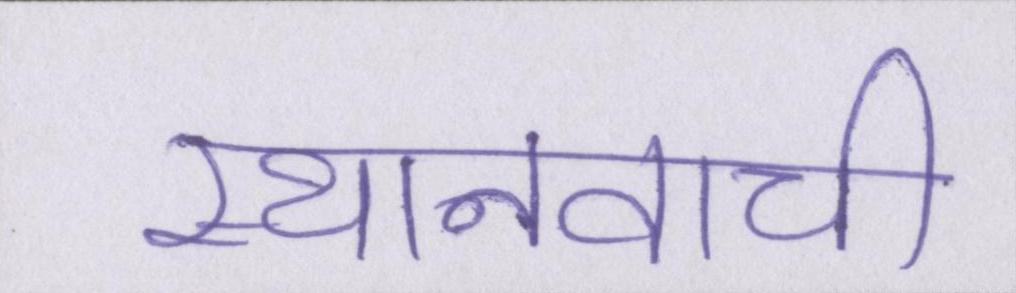 स्थानवाची